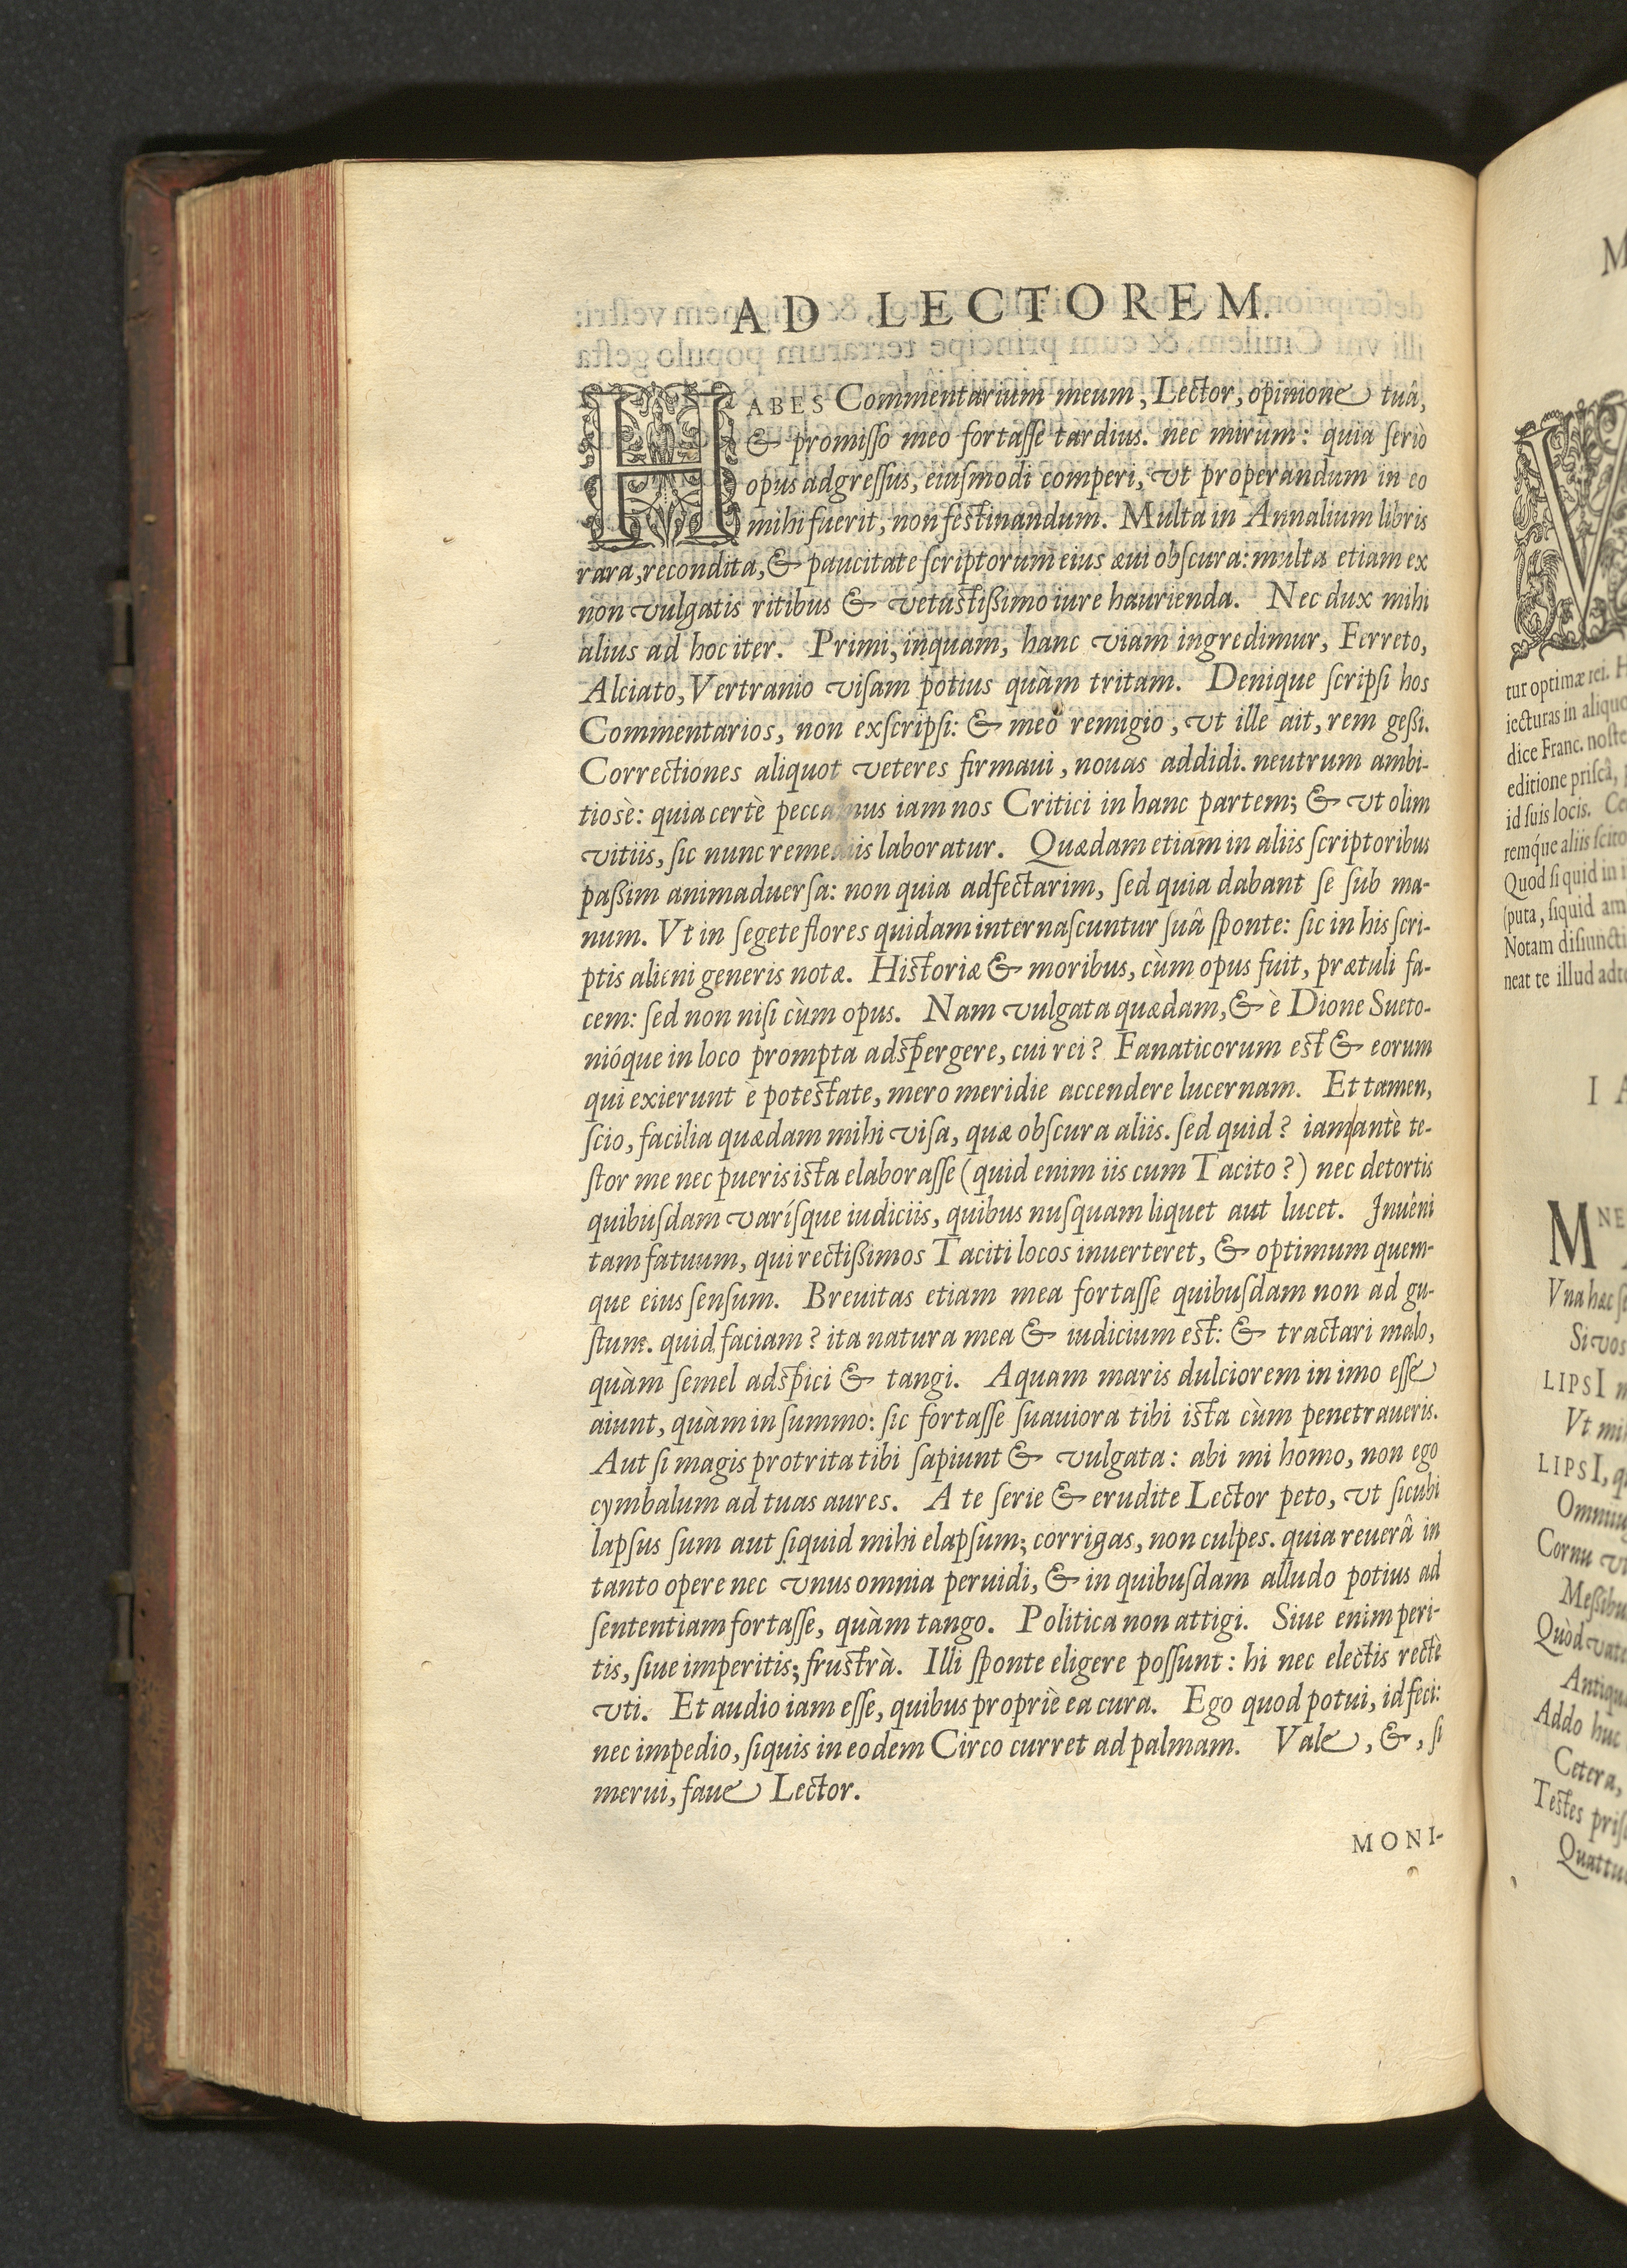 AD LECTOREM.
HABES Commentarium meum, Lector, opinione tuâ,
& promiſſo meo fortaſſe tardius. nec mirum: quia ſeriò
opus adgreſſus, eiuſmodi comperi, vt properandum in eo
mihi fuerit, non feſtinandum. Multa in Annalium libris
rara, recondita, & paucitate ſcriptorum eius æui obſcura: multa etiam ex
non vulgatis ritibus & vetuſtißimo iure haurienda. Nec dux mihi
alius ad hoc iter. Primi, inquam, hanc viam ingredimur, Ferreto,
Alciato, Vertranio viſam potius quàm tritam. Denique ſcripſi hos
Commentarios, non exſcripſi: & meo remigio, vt ille ait, rem geßi.
Correctiones aliquot veteres firmaui, nouas addidi. neutrum ambi-
tiosè: quia certè peccamus iam nos Critici in hanc partem; & vt olim
vitiis, ſic nunc remediis laboratur. Quædam etiam in aliis ſcriptoribus
paßim animaduerſa: non quia adfectarim, ſed quia dabant ſe ſub ma-
num. Vt in ſegete flores quidam internaſcuntur ſuâ ſponte: ſic in his ſcri-
ptis alieni generis notæ. Hiſtoriæ & moribus, cùm opus fuit, prætuli fa-
cem: ſed non niſi cùm opus. Nam vulgata quædam, & è Dione Sueto-
nióque in loco prompta adſpergere, cui rei? Fanaticorum eſt & eorum
qui exierunt è poteſtate, mero meridie accendere lucernam. Et tamen,
ſcio, facilia quædam mihi viſa, quæ obſcura aliis. ſed quid? iam antè te-
ſtor me nec pueris iſta elaboraſſe (quid enim iis cum Tacito?) nec detortis
quibuſdam varíſque iudiciis, quibus nuſquam liquet aut lucet. Inuêni
tam fatuum, qui rectißimos Taciti locos inuerteret, & optimum quem-
que eius ſenſum. Breuitas etiam mea fortaſſe quibuſdam non ad gu-
ſtum. quid faciam? ita natura mea & iudicium eſt: & tractari malo,
quàm ſemel adſpici & tangi. Aquam maris dulciorem in imo eſſe
aiunt, quàm in ſummo: ſic fortaſſe ſuauiora tibi iſta cùm penetraueris.
Aut ſi magis protrita tibi ſapiunt & vulgata: abi mi homo, non ego
cymbalum ad tuas aures. A te ſerie & erudite Lector peto, vt ſicubi
lapſus ſum aut ſiquid mihi elapſum; corrigas, non culpes. quia reuerâ in
tanto opere nec vnus omnia peruidi, & in quibuſdam alludo potius ad
ſententiam fortaſſe, quàm tango. Politica non attigi. Siue enim peri-
tis, ſiue imperitis; fruſtrà. Illi ſponte eligere poſſunt: hi nec electis rectè
vti. Et audio iam eſſe, quibus propriè ea cura. Ego quod potui, id feci:
nec impedio, ſiquis in eodem Circo curret ad palmam. Vale, &, ſi
merui, faue Lector.
MONI-
tur optimæ rei.
iecturas in
dice Franc.
editione priſcâ,
id ſuis locis.
remque aliis
Quod ſi quid in
(puta, ſiquid
Notam
neat te illud
Vna hæc
Si vos
LIPSI
Vt
LIPSI,
Cornu
Quòd
Addo huc
Cetera,
Teſtes